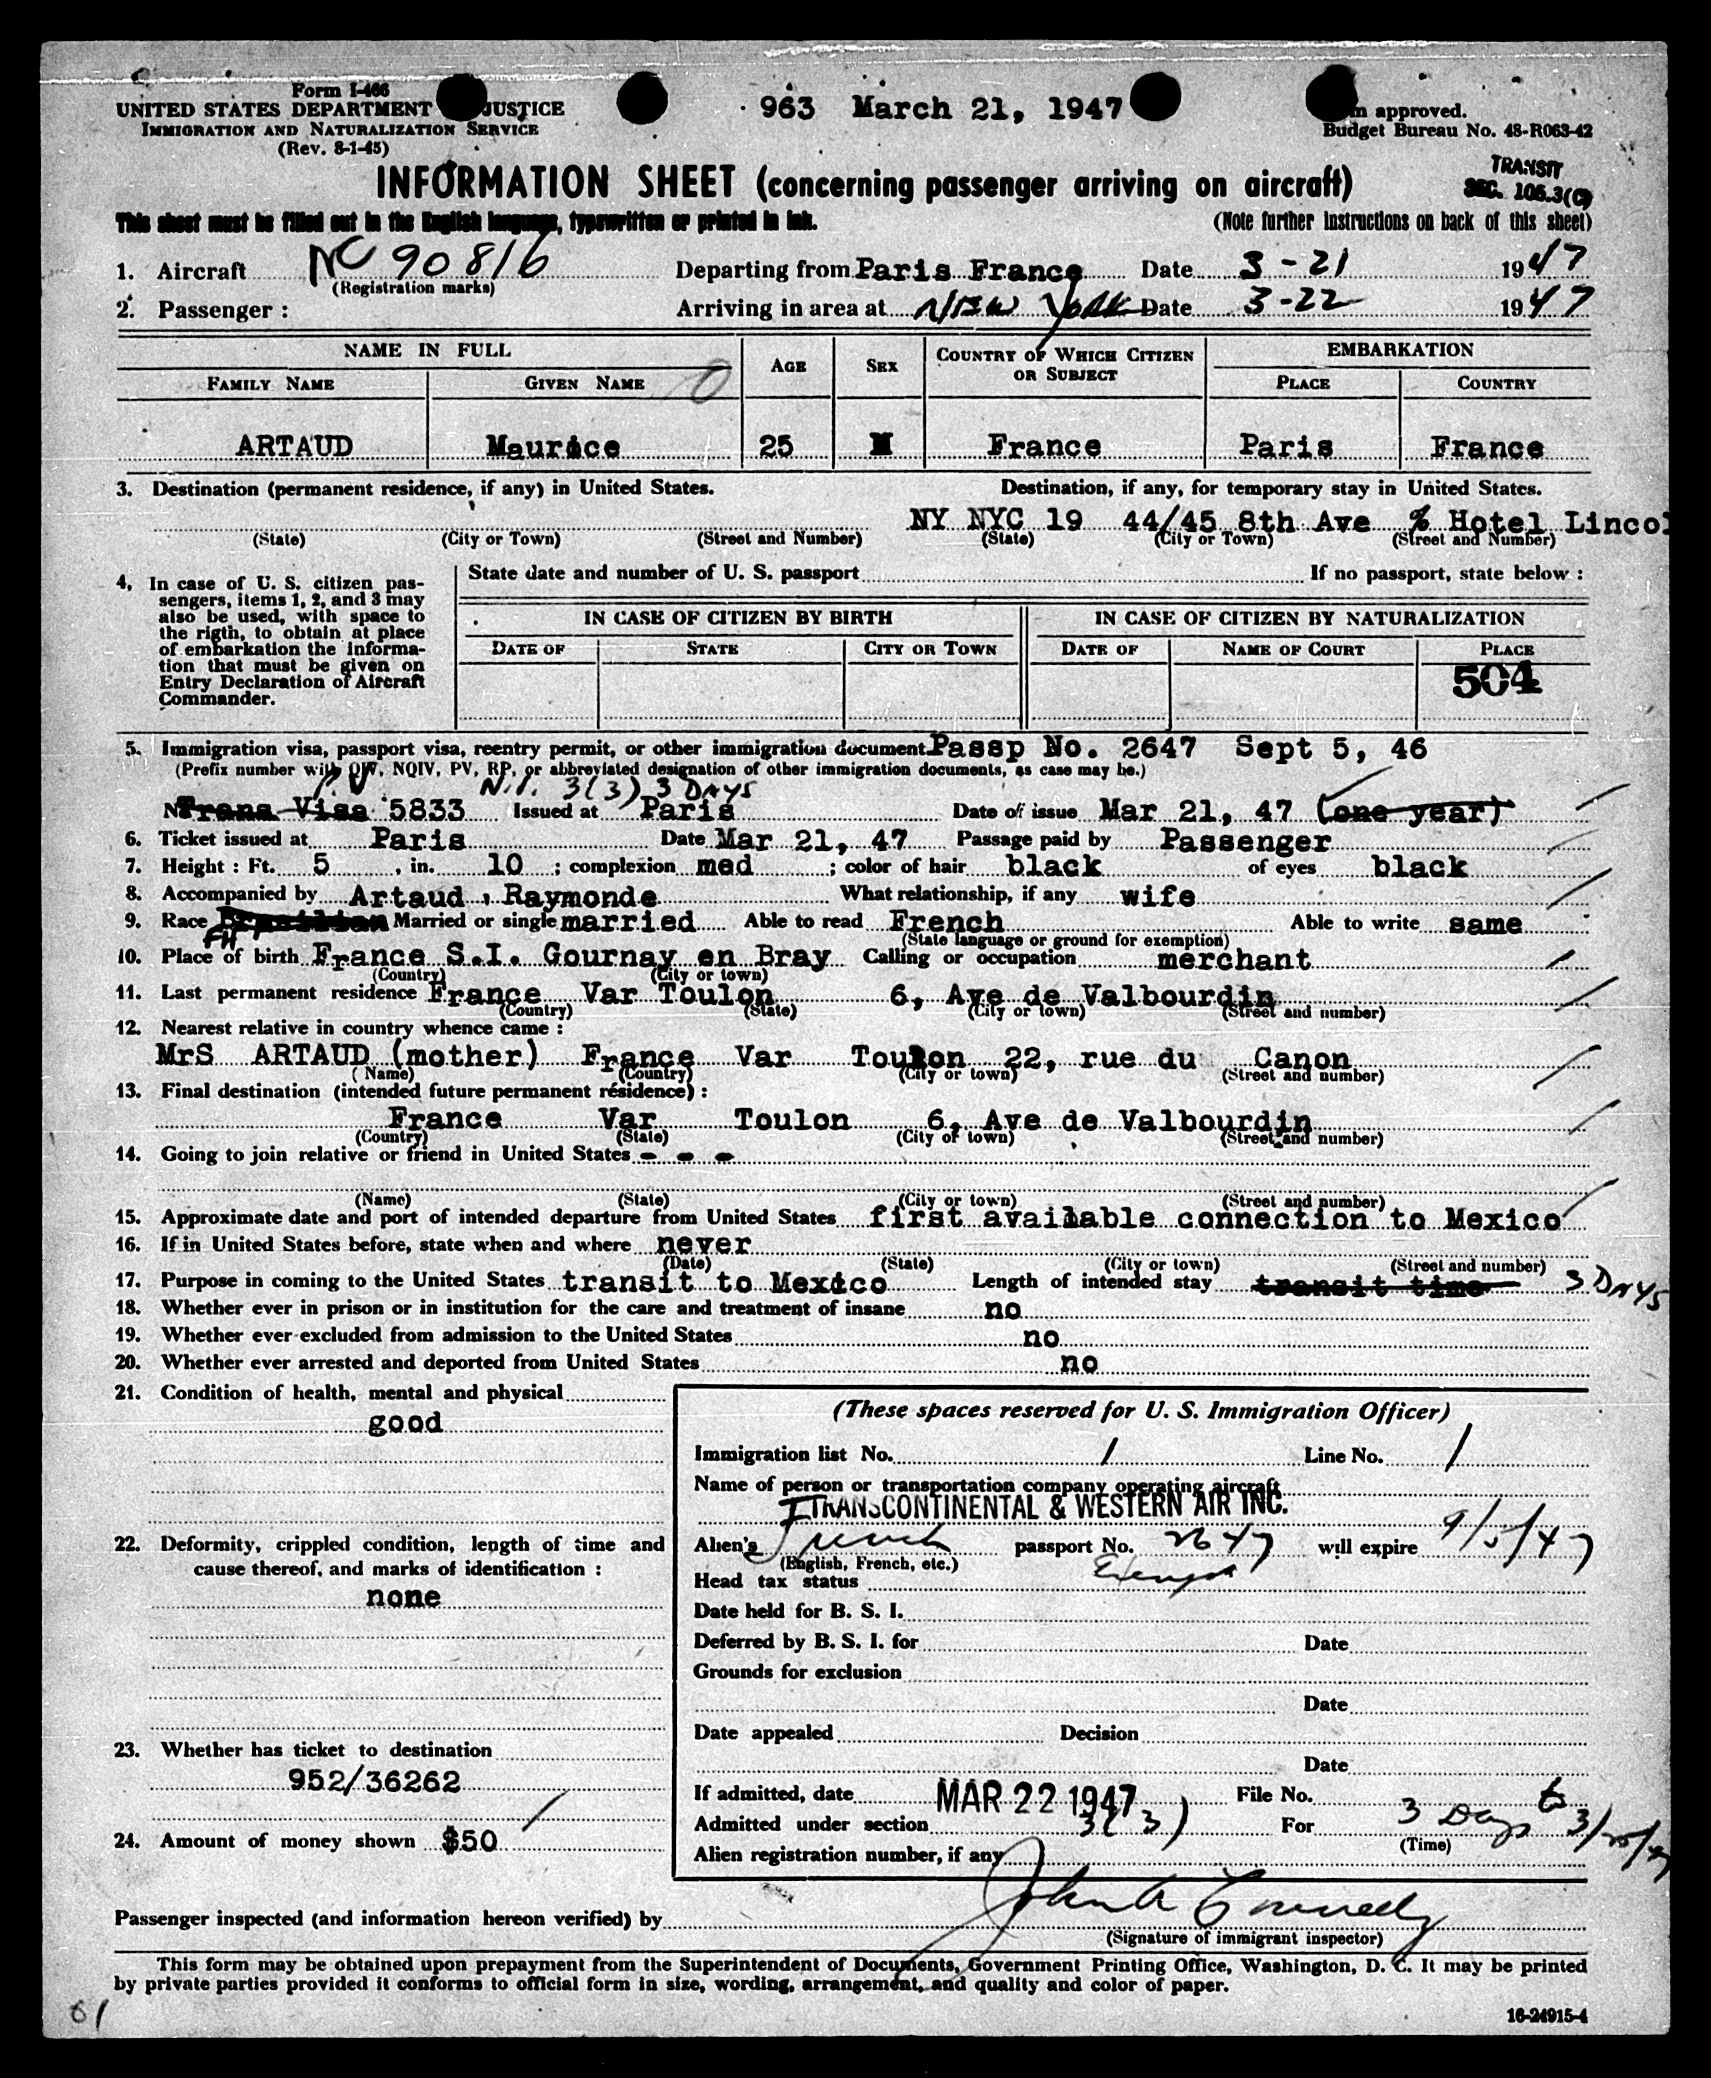 Form I-466
UNITED STATES DEPARTMENT JUSTICE
IMMIGRATION AND NATURALIZATION SERVICE
(Rev. 8-1-45)
963 March 21, 1947
approved.
Budget Bureau No. 48-R063-42
TRANSIT
SEC. 106.3(C)
INFORMATION SHEET (concerning passenger arriving on aircraft)
This sheet must be filled out in the English language, typewritten or printed in ink. (Note further instructions on back of this sheet)
1. Aircraft NC 90816 Departing from Paris France Date 3-21 1947
(Registration marks)
2. Passenger: Arriving in area at New York Date 3-22 1947
NAME IN FULL AGE SEX COUNTRY OF WHICH CITIZEN OR SUBJECT EMBARKATION
FAMILY NAME GIVEN NAME PLACE COUNTRY
ARTAUD Maurice 25 M France Paris France
3. Destination (permanent residence, if any) in United States. Destination, if any, for temporary stay in United States.
NY NYC 19 44/45 8th Ave % Hotel Lincol
(State) (City or Town) (Street and Number) (State) (City or Town) (Street and Number)
4, In case of U. S. citizen pas-
sengers, items 1, 2, and 3 may
also be used, with space to
the rigth, to obtain at place
of embarkation the informa-
tion that must be given on
Entry Declaration of Aircraft
Commander.
State date and number of U. S. passport If no passport, state below:
IN CASE OF CITIZEN BY BIRTH IN CASE OF CITIZEN BY NATURALIZATION
DATE OF STATE CITY OR TOWN DATE OF NAME OF COURT PLACE
504
5. Immigration visa, passport visa, reentry permit, or other immigration document Passp No. 2647 Sept 5, 46
(Prefix number with QIV, NQIV, PV, RP, or abbreviated designation of other immigration documents, as case may be.)
P.V. N.I. 3(3) 3 DAYS
Trans Visa 5833 Issued at Paris Date of issue Mar 21, 47 (one year)
6. Ticket issued at Paris Date Mar 21, 47 Passage paid by Passenger
7. Height: Ft. 5, in. 10; complexion med; color of hair black of eyes black
8. Accompanied by Artaud, Raymonde What relationship, if any wife
9. Race Married or single married Able to read French Able to write same
FH (State language or ground for exemption)
10. Place of birth France S.I. Gournay en Bray Calling or occupation merchant
(Country) (City or town)
11. Last permanent residence France Var Toulon 6, Ave de Valbourdin
(Country) (State) (City or town) (Street and number)
12. Nearest relative in country whence came:
MrS ARTAUD (mother) France Var Toulon 22, rue du Canon
(Name) (Country) (City or town) (Street and number)
13. Final destination (intended future permanent residence):
France Var Toulon 6, Ave de Valbourdin
(Country) (State) (City or town) (Street and number)
14. Going to join relative or friend in United States - - -
(Name) (State) (City or town) (Street and number)
15. Approximate date and port of intended departure from United States first available connection to Mexico
16. If in United States before, state when and where never
(Date) (State) (City or town) (Street and number)
17. Purpose in coming to the United States transit to Mexico Length of intended stay transit time 3 DAYS
18. Whether ever in prison or in institution for the care and treatment of insane no
19. Whether ever excluded from admission to the United States no
20. Whether ever arrested and deported from United States no
21. Condition of health, mental and physical
good
22. Deformity, crippled condition, length of time and
cause thereof, and marks of identification:
none
23. Whether has ticket to destination
952/36262
24. Amount of money shown $50
(These spaces reserved for U. S. Immigration Officer)
Immigration list No. 1 Line No. 1
Name of person or transportation company operating aircraft
TRANSCONTINENTAL & WESTERN AIR INC.
Alien's French passport No. 2647 will expire 9/5/47
(English, French, etc.)
Head tax status Exempt
Date held for B. S. I.
Deferred by B. S. I. for Date
Grounds for exclusion
Date
Date appealed Decision
Date
If admitted, date MAR 22 1947 File No.
Admitted under section 3(3) For 3 Days to 3/25/47
(Time)
Alien registration number, if any
Passenger inspected (and information hereon verified) by John A Connelly
(Signature of immigrant inspector)
This form may be obtained upon prepayment from the Superintendent of Documents, Government Printing Office, Washington, D. C. It may be printed
by private parties provided it conforms to official form in size, wording, arrangement, and quality and color of paper.
61
16-24915-4